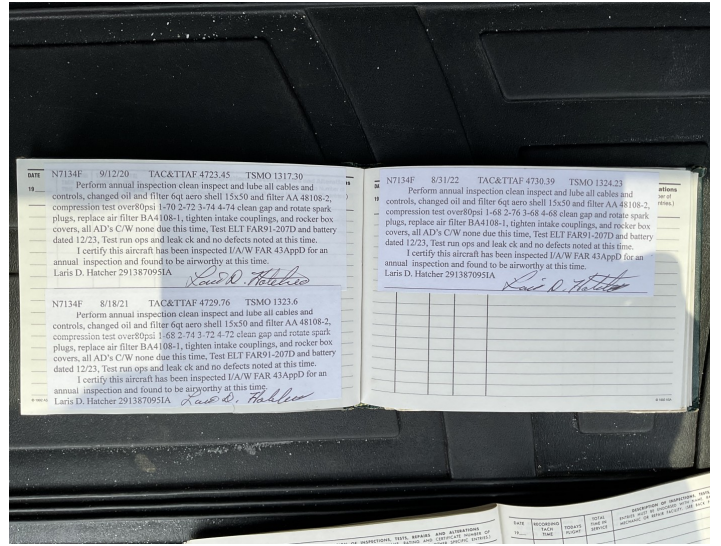 DATE
19
N7134F 9/12/20 TAC&TTAF 4723.45 TSMO 1317.30
Perform annual inspection clean inspect and lube all cables and
controls, changed oil and filter 6qt aero shell 15x50 and filter AA 48108-2,
compression test over80psi 1-70 2-72 3-74 4-74 clean gap and rotate spark
plugs, replace air filter BA4108-1, tighten intake couplings, and rocker box
covers, all AD's C/W none due this time, Test ELT FAR91-207D and battery
dated 12/23, Test run ops and leak ck and no defects noted at this time.
I certify this aircraft has been inspected I/A/W FAR 43AppD for an
annual inspection and found to be airworthy at this time.
Laris D. Hatcher 291387095IA
N7134F 8/18/21 TAC&TTAF 4729.76 TSMO 1323.6
Perform annual inspection clean inspect and lube all cables and
controls, changed oil and filter 6qt aero shell 15x50 and filter AA 48108-2,
compression test over80psi 1-68 2-74 3-72 4-72 clean gap and rotate spark
plugs, replace air filter BA4108-1, tighten intake couplings, and rocker box
covers, all AD's C/W none due this time, Test ELT FAR91-207D and battery
dated 12/23, Test run ops and leak ck and no defects noted at this time.
I certify this aircraft has been inspected I/A/W FAR 43AppD for an
annual inspection and found to be airworthy at this time.
Laris D. Hatcher 291387095IA
N7134F 8/31/22 TAC&TTAF 4730.39 TSMO 1324.23
Perform annual inspection clean inspect and lube all cables and
controls, changed oil and filter 6qt aero shell 15x50 and filter AA 48108-2,
compression test over80psi 1-68 2-76 3-68 4-68 clean gap and rotate spark
plugs, replace air filter BA4108-1, tighten intake couplings, and rocker box
covers, all AD's C/W none due this time, Test ELT FAR91-207D and battery
dated 12/23, Test run ops and leak ck and no defects noted at this time.
I certify this aircraft has been inspected I/A/W FAR 43AppD for an
annual inspection and found to be airworthy at this time.
Laris D. Hatcher 291387095IA
ations
OF INSPECTIONS, TESTS, REPAIRS AND ALTERATIONS
RATING AND CERTIFICATE NUMBER OF
SPECIFIC ENTRIES.)
DATE
19
RECORDING
TACH
TIME
TODAYS
FLIGHT
TOTAL
TIME IN
SERVICE
DESCRIPTION OF INSPECTIONS, TESTS,
MECHANIC OR REPAIR FACILITY. (SEE BACK